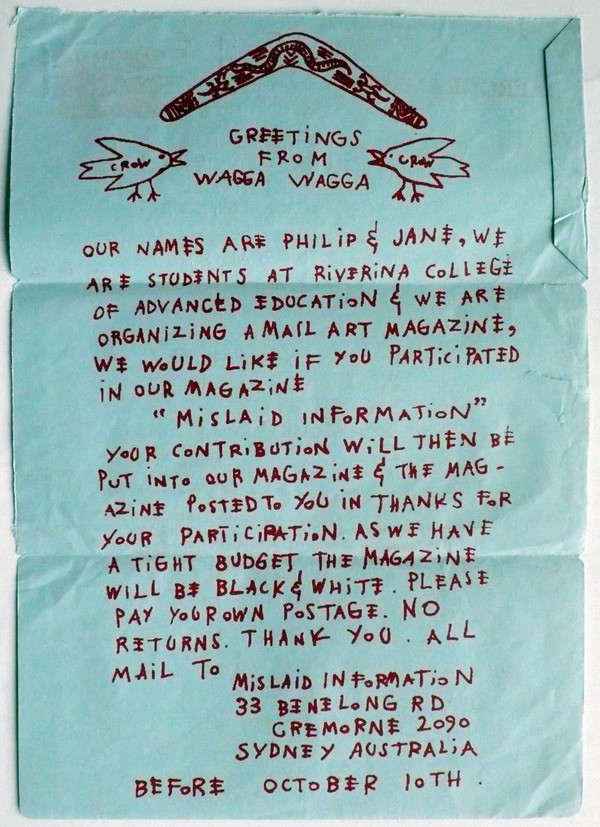 GREETINGS
FROM
WAGGA WAGGA
CROW
CROW
OUR NAMES ARE PHILIP & JANE, WE
ARE STUDENTS AT RIVERINA COLLEGE
OF ADVANCED EDUCATION & WE ARE
ORGANIZING A MAIL ART MAGAZINE,
WE WOULD LIKE IF YOU PARTICIPATED
IN OUR MAGAZINE
"MISLAID INFORMATION"
YOUR CONTRIBUTION WILL THEN BE
PUT INTO OUR MAGAZINE & THE MAG-
AZINE POSTED TO YOU IN THANKS FOR
YOUR PARTICIPATION. AS WE HAVE
A TIGHT BUDGET THE MAGAZINE
WILL BE BLACK & WHITE. PLEASE
PAY YOUR OWN POSTAGE. NO
RETURNS. THANK YOU. ALL
MAIL TO
MISLAID INFORMATION
33 BENELONG RD
CREMORNE 2090
SYDNEY AUSTRALIA
BEFORE OCTOBER 10TH.